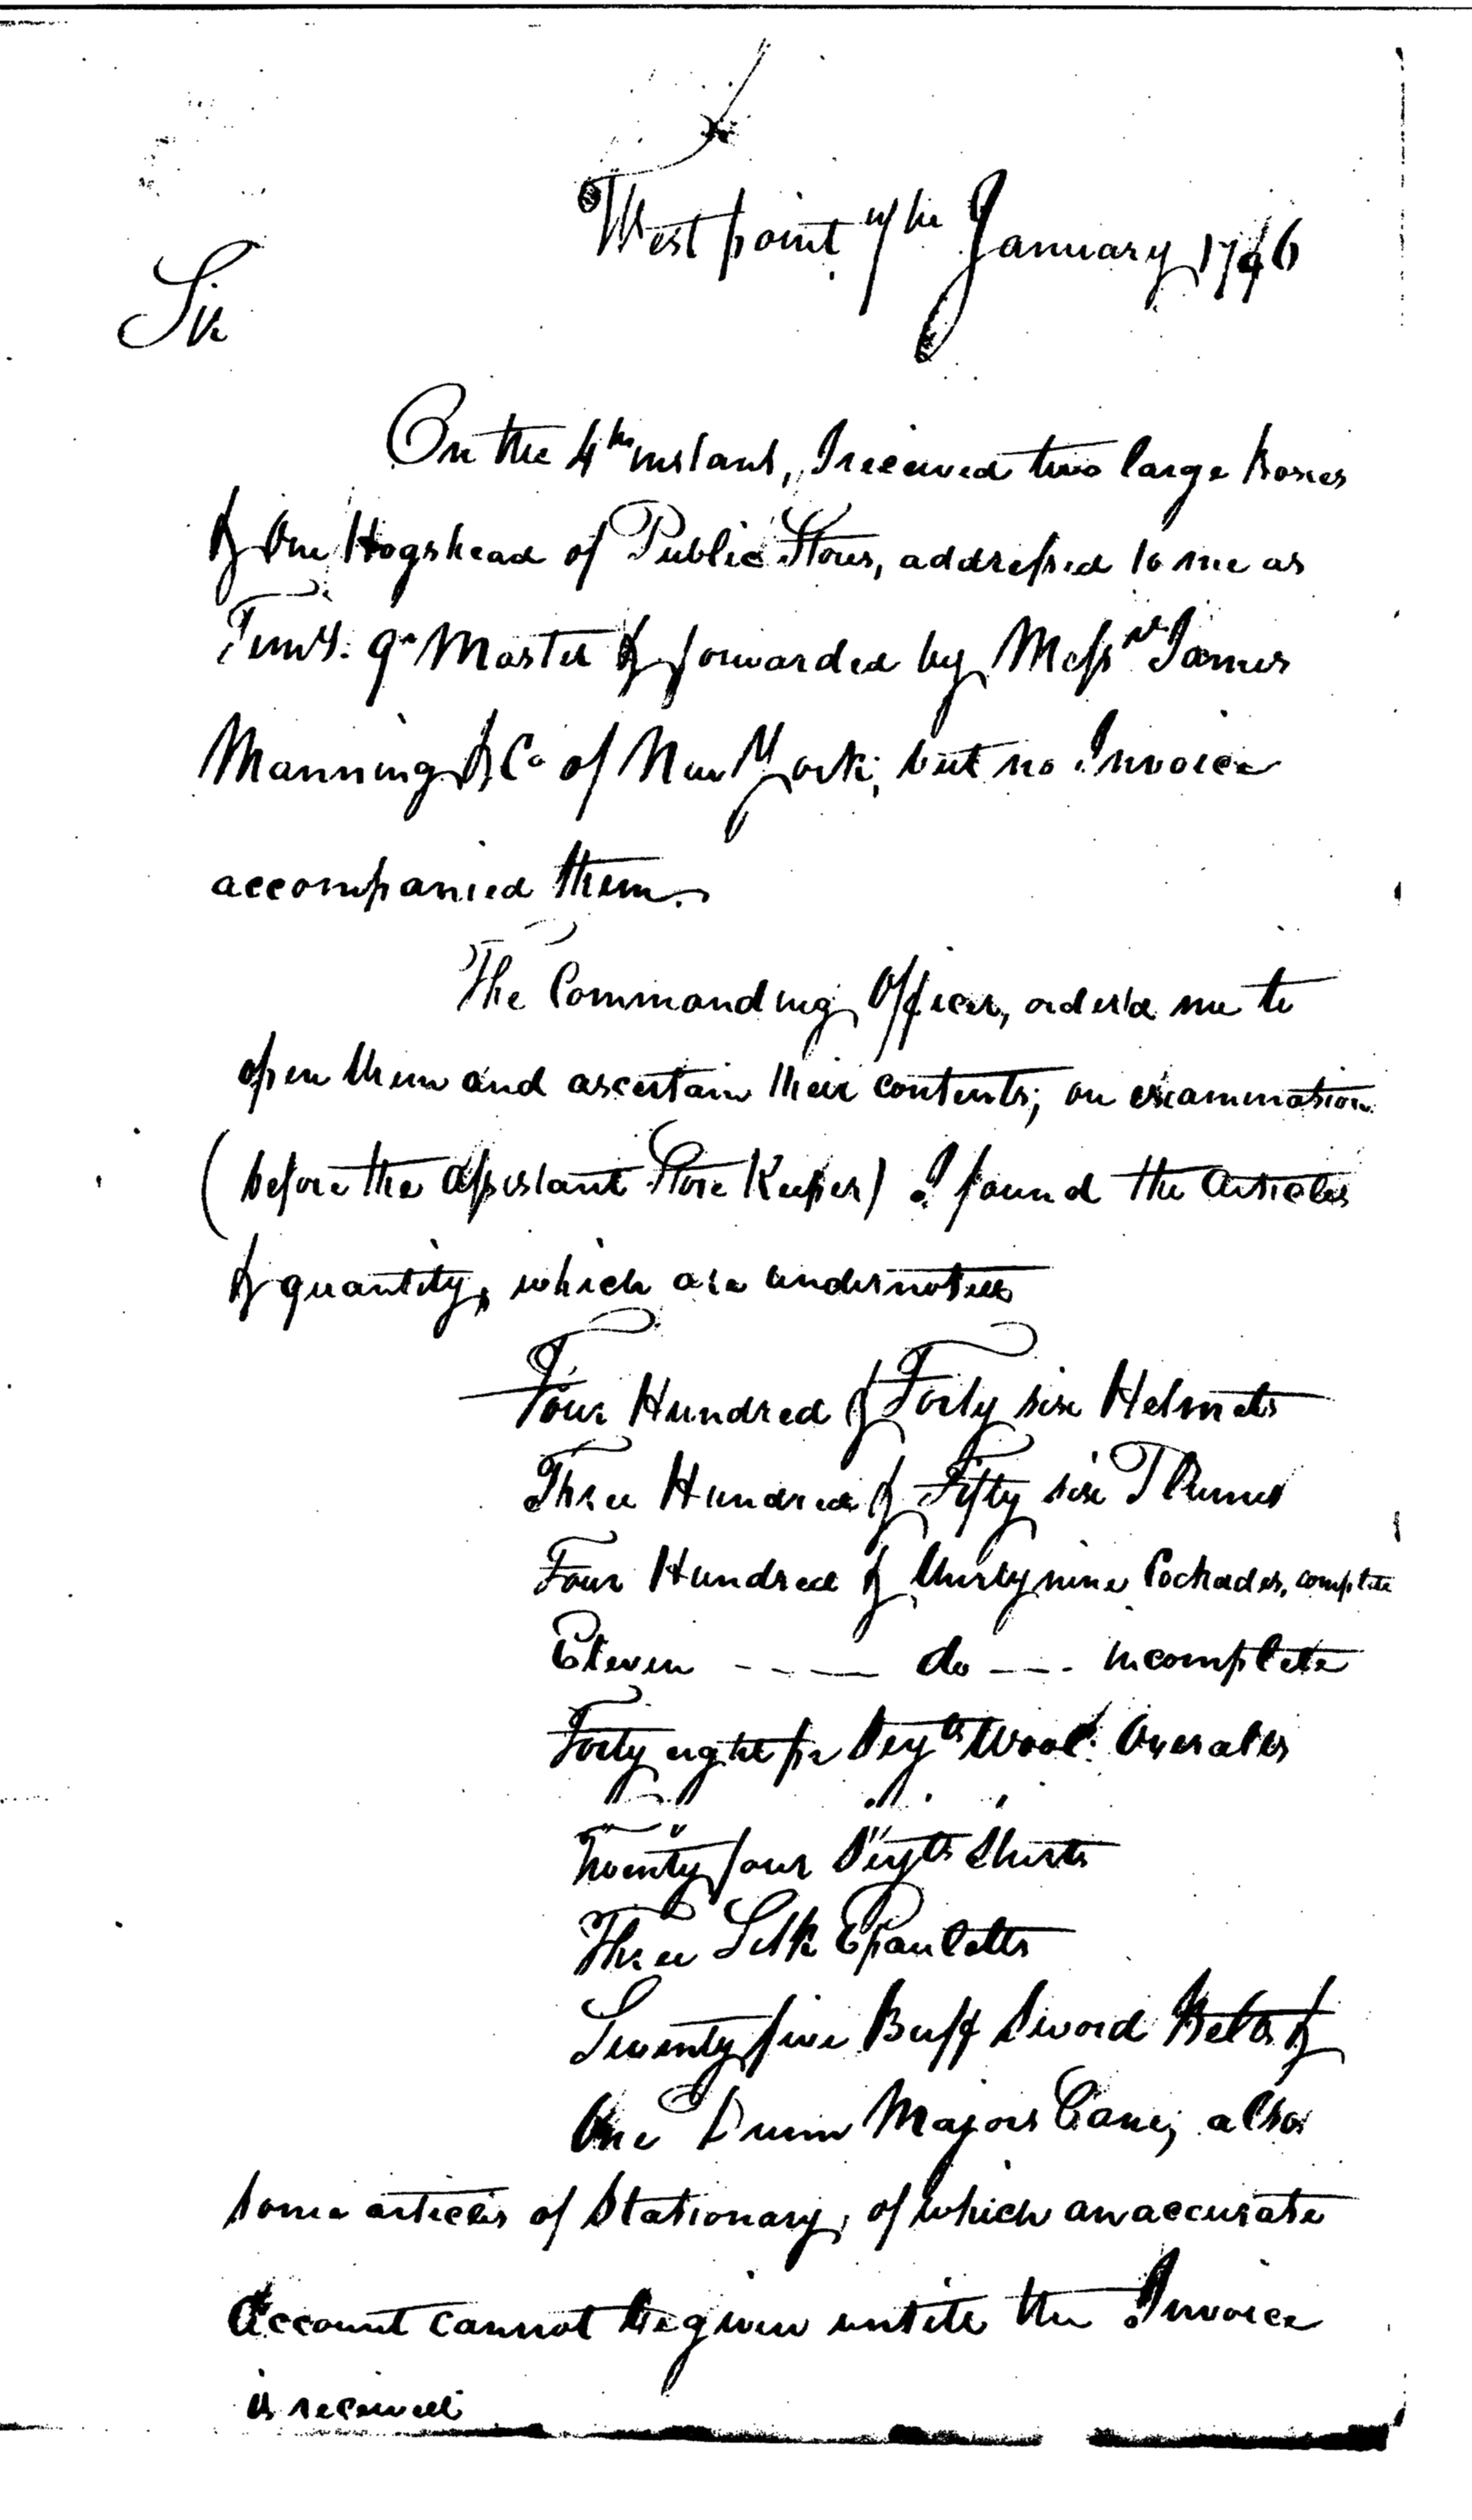 West point 7th January 1796
Sir
On the 4th instant, I received two large boxes
& One Hogshead of Public Stores, addressed to me as
Qr Master & forwarded by Messrs James
Manning & Co of New York; but no Invoice
accompanied them.
The Commanding Officer, order'd me to
open them and ascertain their contents; on examination
(before the Assistant Store Keeper) I found the Articles
& quantity, which are undernoted
Four Hundred & Forty six Helmets
Three Hundred & Fifty six Plumes
Four Hundred & thirty nine Cockades, complete
Eleven ---- do --- incomplete
Forty eight pr Sergts Wool. Overalls
Twenty four Sergts Shirts
Three Silk Epauletts
Twenty five Buff Sword Belts &
One Drum Majors Cane; also
some articles of Stationary, of which an accurate
Account cannot be given untill the Invoice
is received